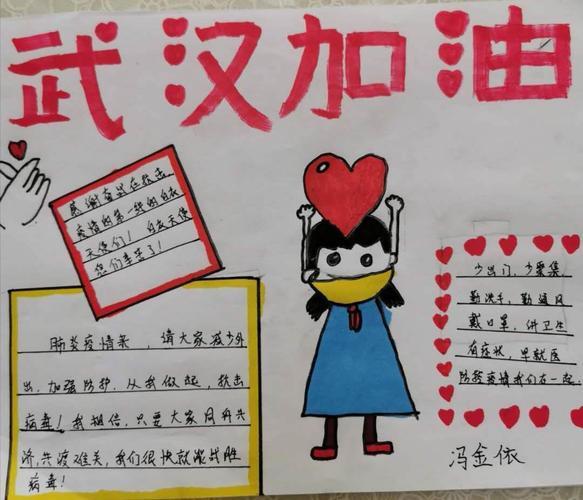 武汉加油
感谢奋斗在抗击
疫情的第一线的白衣
天使们！白衣天使
您们辛苦了！
肺炎疫情来，请大家减少外
出，加强防护，从我做起，抗击
病毒！我相信，只要大家同舟共
济，共渡难关，我们很快就能战胜
病毒！
少出门，少聚集
勤洗手，勤通风
戴口罩，讲卫生
有症状，早就医
防控疫情我们在一起
冯金依